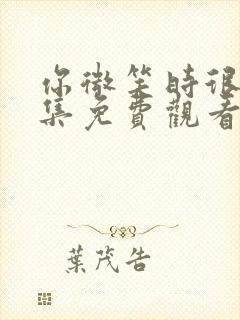 你微笑時很
集免費觀看
葉茂告